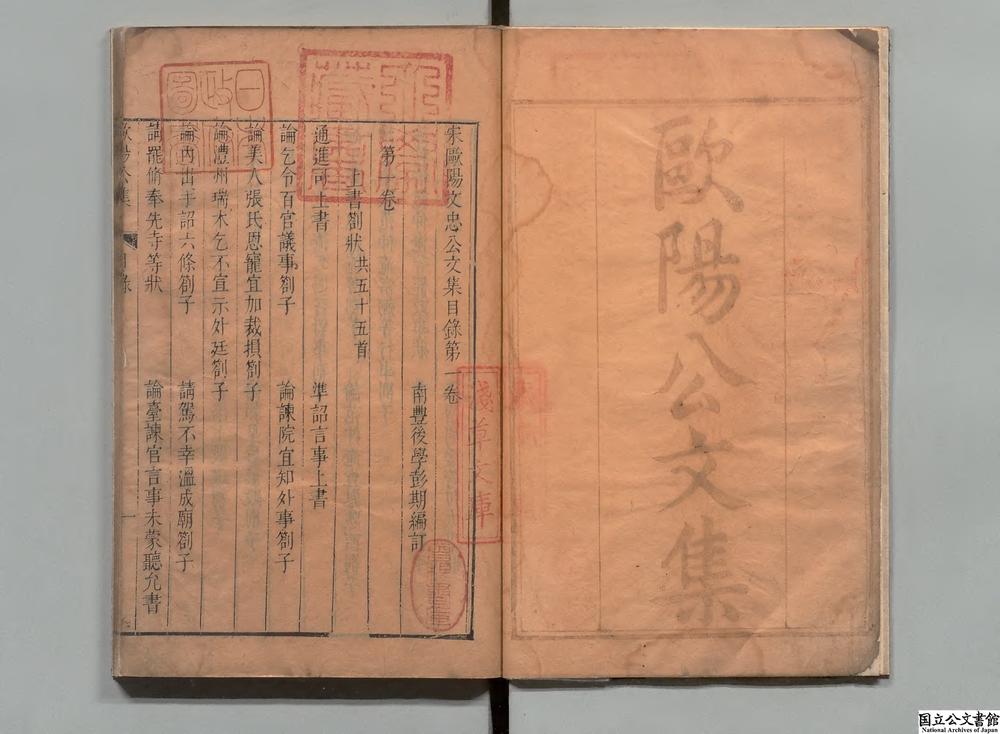 歐陽公文集
宋歐陽文忠公文集目錄第一卷
南豐後學彭期編訂
第一卷
上書劄狀共五十五首
通進司上書
準詔言事上書
論乞令百官議事劄子
論諫院宜知外事劄子
論美人張氏恩寵宜加裁損劄子
論澧州瑞木乞不宣示外廷劄子
論內出手詔六條劄子
請駕不幸溫成廟劄子
請罷脩奉先寺等狀
論臺諫官言事未蒙聽允書
目錄
一
淺草文庫
日本
政府
圖書
国立公文書館
National Archives of Japan